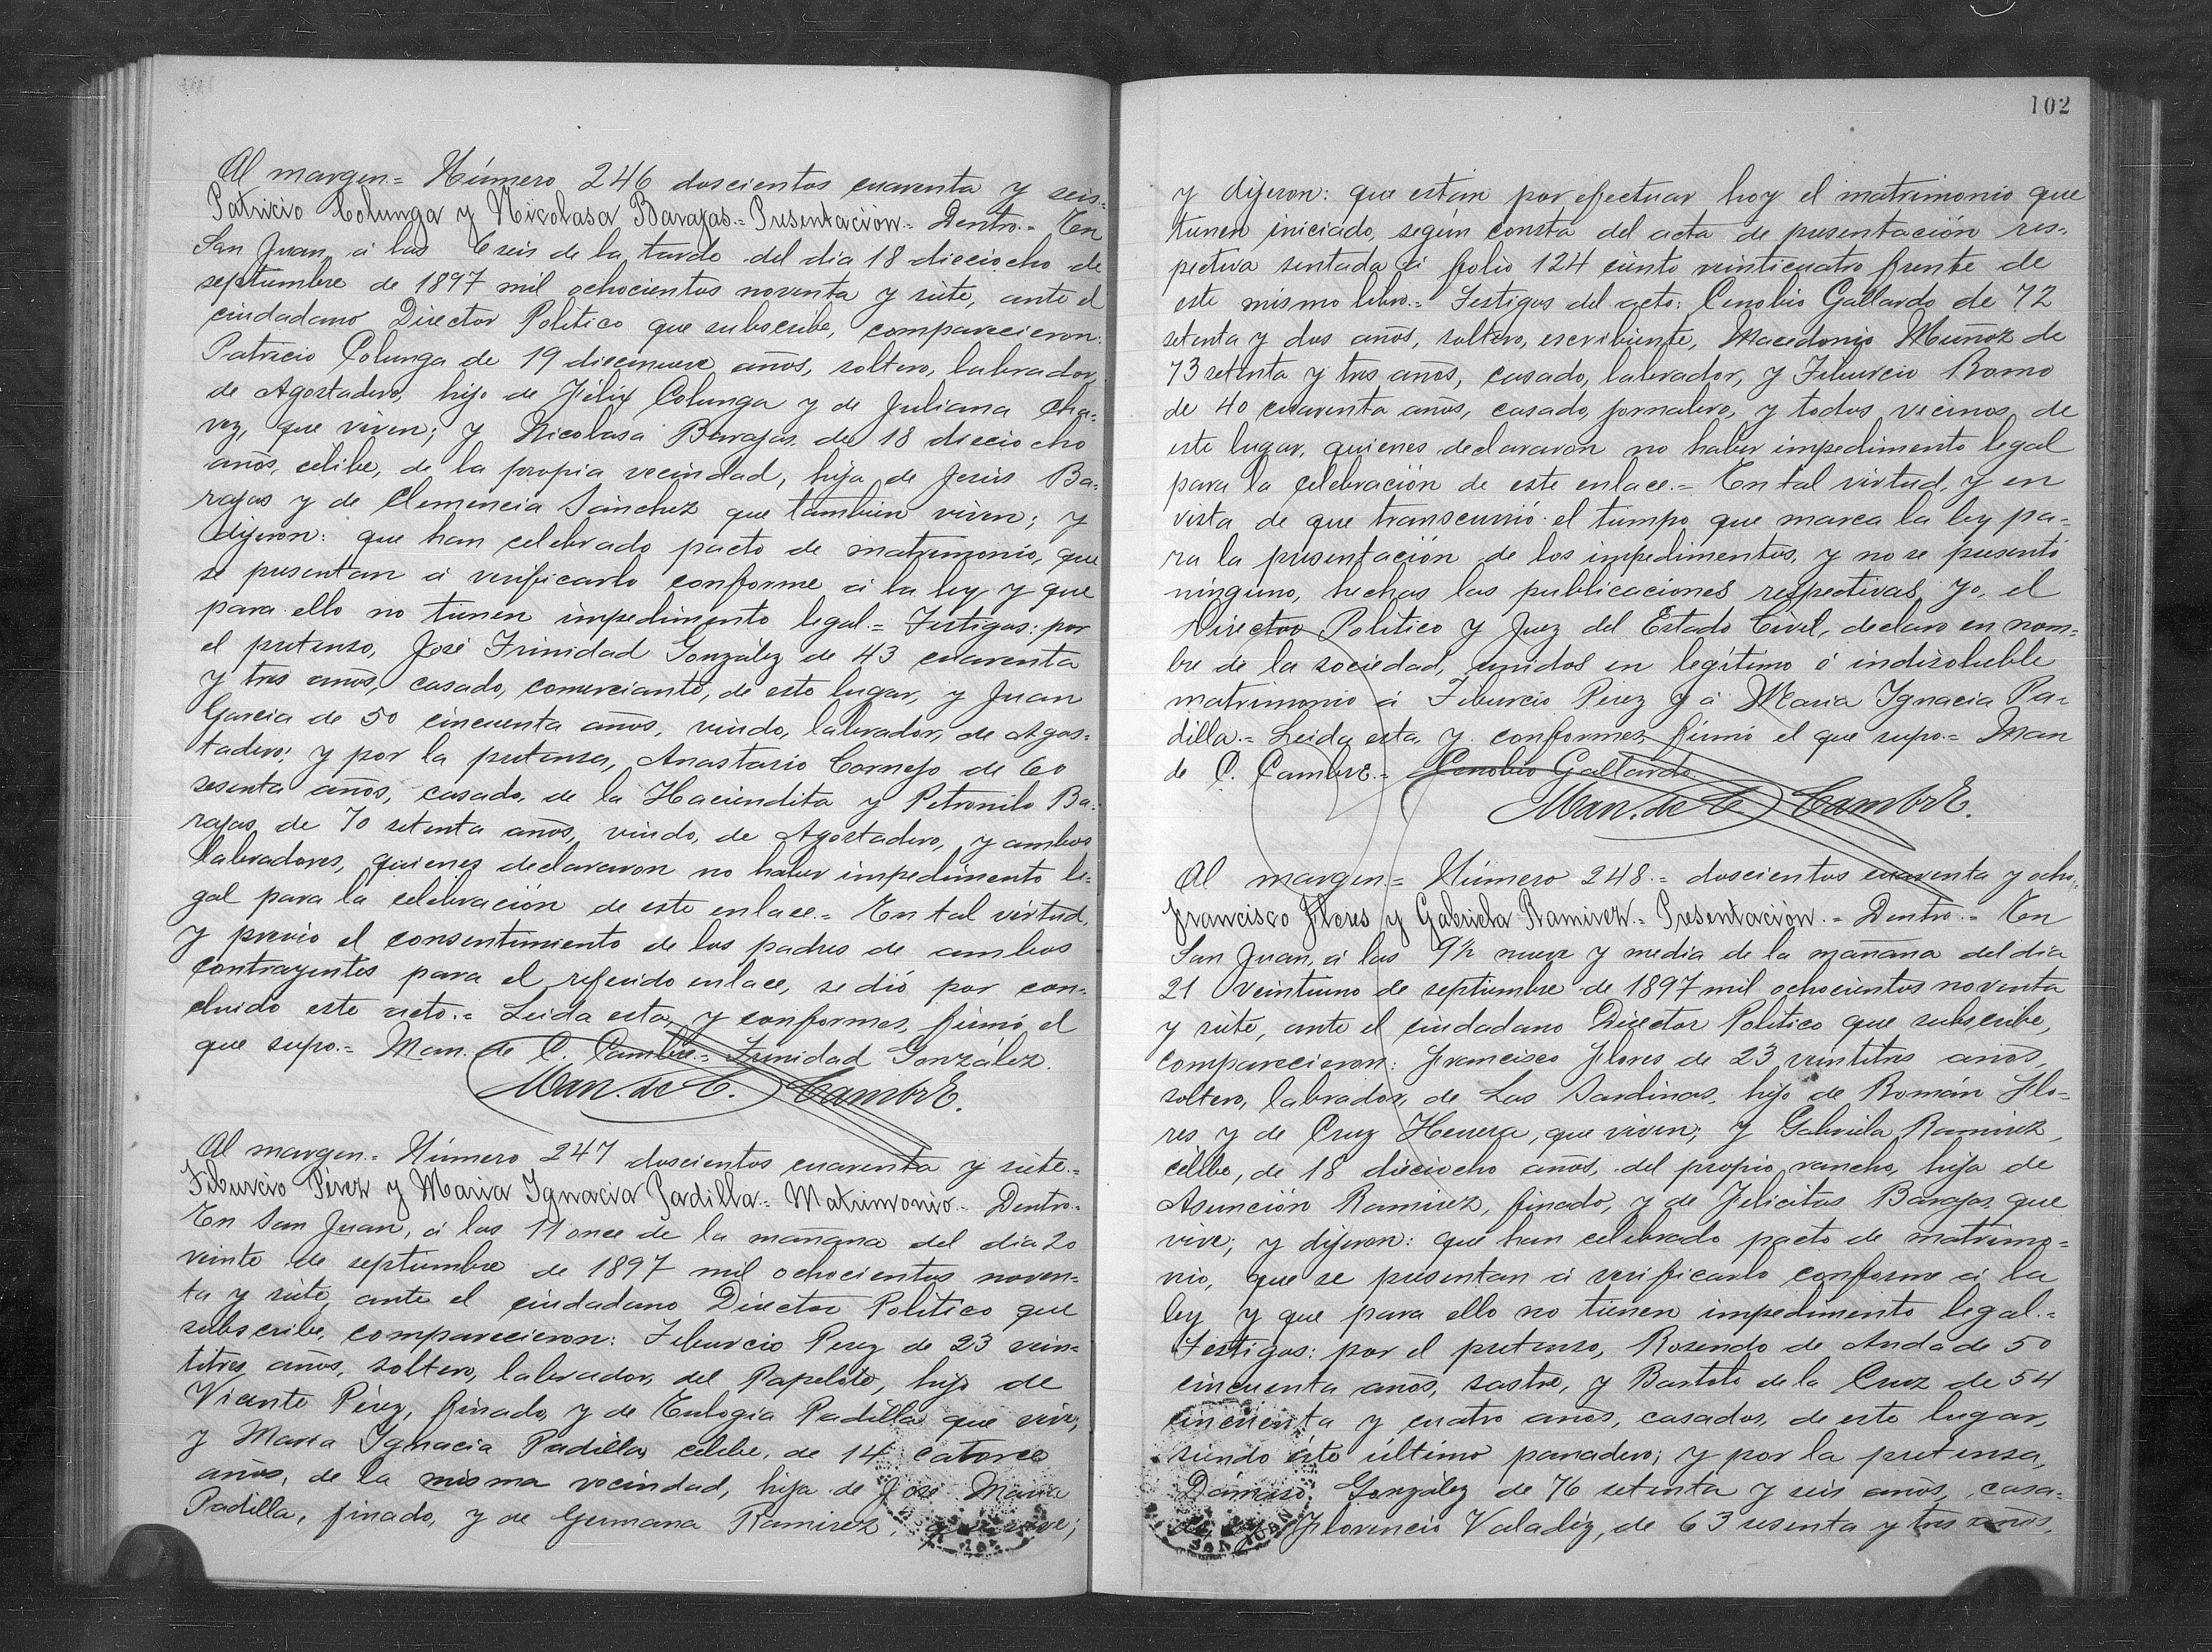 Al margen.= Número 246 doscientos cuarenta y seis.=
Patricio Colunga y Nicolasa Barajas.= Presentación.= Dentro.= En
San Juan, á las 6 seis de la tarde del dia 18 dieciocho de
septiembre de 1897 mil ochocientos noventa y siete, ante el
ciudadano Director Político que subscribe, comparecieron:
Patricio Colunga de 19 diecinueve años, soltero, labrador,
de Agostadero, hijo de Félix Colunga y de Juliana Cha-
vez, que viven; y Nicolasa Barajas de 18 dieciocho
años, célibe, de la propia vecindad, hija de Jesús Ba-
rajas y de Clemencia Sánchez que tambien viven; y
dijeron: que han celebrado pacto de matrimonio, que
se presentan á verificarlo conforme á la ley y que
para ello no tienen impedimento legal.= Testigos: por
el pretenso, José Trinidad González de 43 cuarenta
y tres años, casado, comerciante, de este lugar, y Juan
Garcia de 50 cincuenta años, viudo, labrador, de Agos-
tadero; y por la pretensa, Anastasio Cornejo de 60
sesenta años, casado, de la Haciendita y Petronilo Ba-
rajas de 70 setenta años, viudo, de Agostadero, y ambos
labradores, quienes declararon no haber impedimento le-
gal para la celebración de este enlace.= En tal virtud,
y previo el consentimiento de los padres de ambos
contrayentes para el referido enlace, se dió por con-
cluido este acto.= Leida esta, y conformes, firmó el
que supo.= Man. de C. Cambre.= Trinidad González.
Man. de C. Cambre.
Al margen.= Número 247 doscientos cuarenta y siete.=
Tiburcio Pérez y Maria Ignacia Padilla.= Matrimonio.= Dentro.=
En San Juan, á las 11 once de la mañana del dia 20
veinte de septiembre de 1897 mil ochocientos noven-
ta y siete, ante el ciudadano Director Político que
subscribe, comparecieron: Tiburcio Perez de 23 vein-
titres años, soltero, labrador, del Papelote, hijo de
Vicente Pérez, finado, y de Eulogia Padilla que vive,
y Maria Ignacia Padilla, célibe, de 14 catorce
años, de la misma vecindad, hija de José Maria
Padilla, finado, y de Germana Ramirez, que vive;
102
y dijeron: que están por efectuar hoy el matrimonio que
tienen iniciado, según consta del acta de presentación res-
pectiva sentada á folio 124 ciento veinticuatro frente de
este mismo libro.= Testigos del acto: Cenobio Gallardo de 72
setenta y dos años, soltero, escribiente, Macedonio Muñoz de
73 setenta y tres años, casado, labrador, y Tiburcio Romo
de 40 cuarenta años, casado, jornalero, y todos vecinos de
este lugar, quienes declararon no haber impedimento legal
para la celebración de este enlace.= En tal virtud, y en
vista de que transcurrió el tiempo que marca la ley pa-
ra la presentación de los impedimentos, y no se presentó
ninguno, hechas las publicaciones respectivas, yo, el
Director Político y Juez del Estado Civil, declaro en nom-
bre de la sociedad, unidos en legítimo é indisoluble
matrimonio á Tiburcio Perez y á Maria Ignacia Pa-
dilla.= Leida esta, y conformes, firmó el que supo.= Man
de C. Cambre.= Cenobio Gallardo.
Man. de C. Cambre.
Al margen.= Número 248.= doscientos cuarenta y ocho.
Francisco Flores y Gabriela Ramirez.= Presentación.= Dentro.= En
San Juan, á las 9½ nueve y media de la mañana del dia
21 veintiuno de septiembre de 1897 mil ochocientos noventa
y siete, ante el ciudadano Director Político que subscribe,
comparecieron: Francisco Flores de 23 veintitres años,
soltero, labrador, de Las Sardinas, hijo de Román Flo-
res y de Cruz Herrera, que viven; y Gabriela Ramirez,
célibe, de 18 dieciocho años, del propio rancho, hija de
Asunción Ramirez, finado, y de Felicitas Barajas que
vive; y dijeron: que han celebrado pacto de matrimo-
nio, que se presentan á verificarlo conforme á la
ley y que para ello no tienen impedimento legal.=
Testigos: por el pretenso, Rosendo de Anda de 50
cincuenta años, sastre, y Bartolo de la Cruz de 54
cincuenta y cuatro años, casados, de este lugar,
siendo éste último panadero; y por la pretensa,
Dámaso González de 76 setenta y seis años, casa-
Florencio Valadéz, de 63 sesenta y tres años,
SAN JUAN